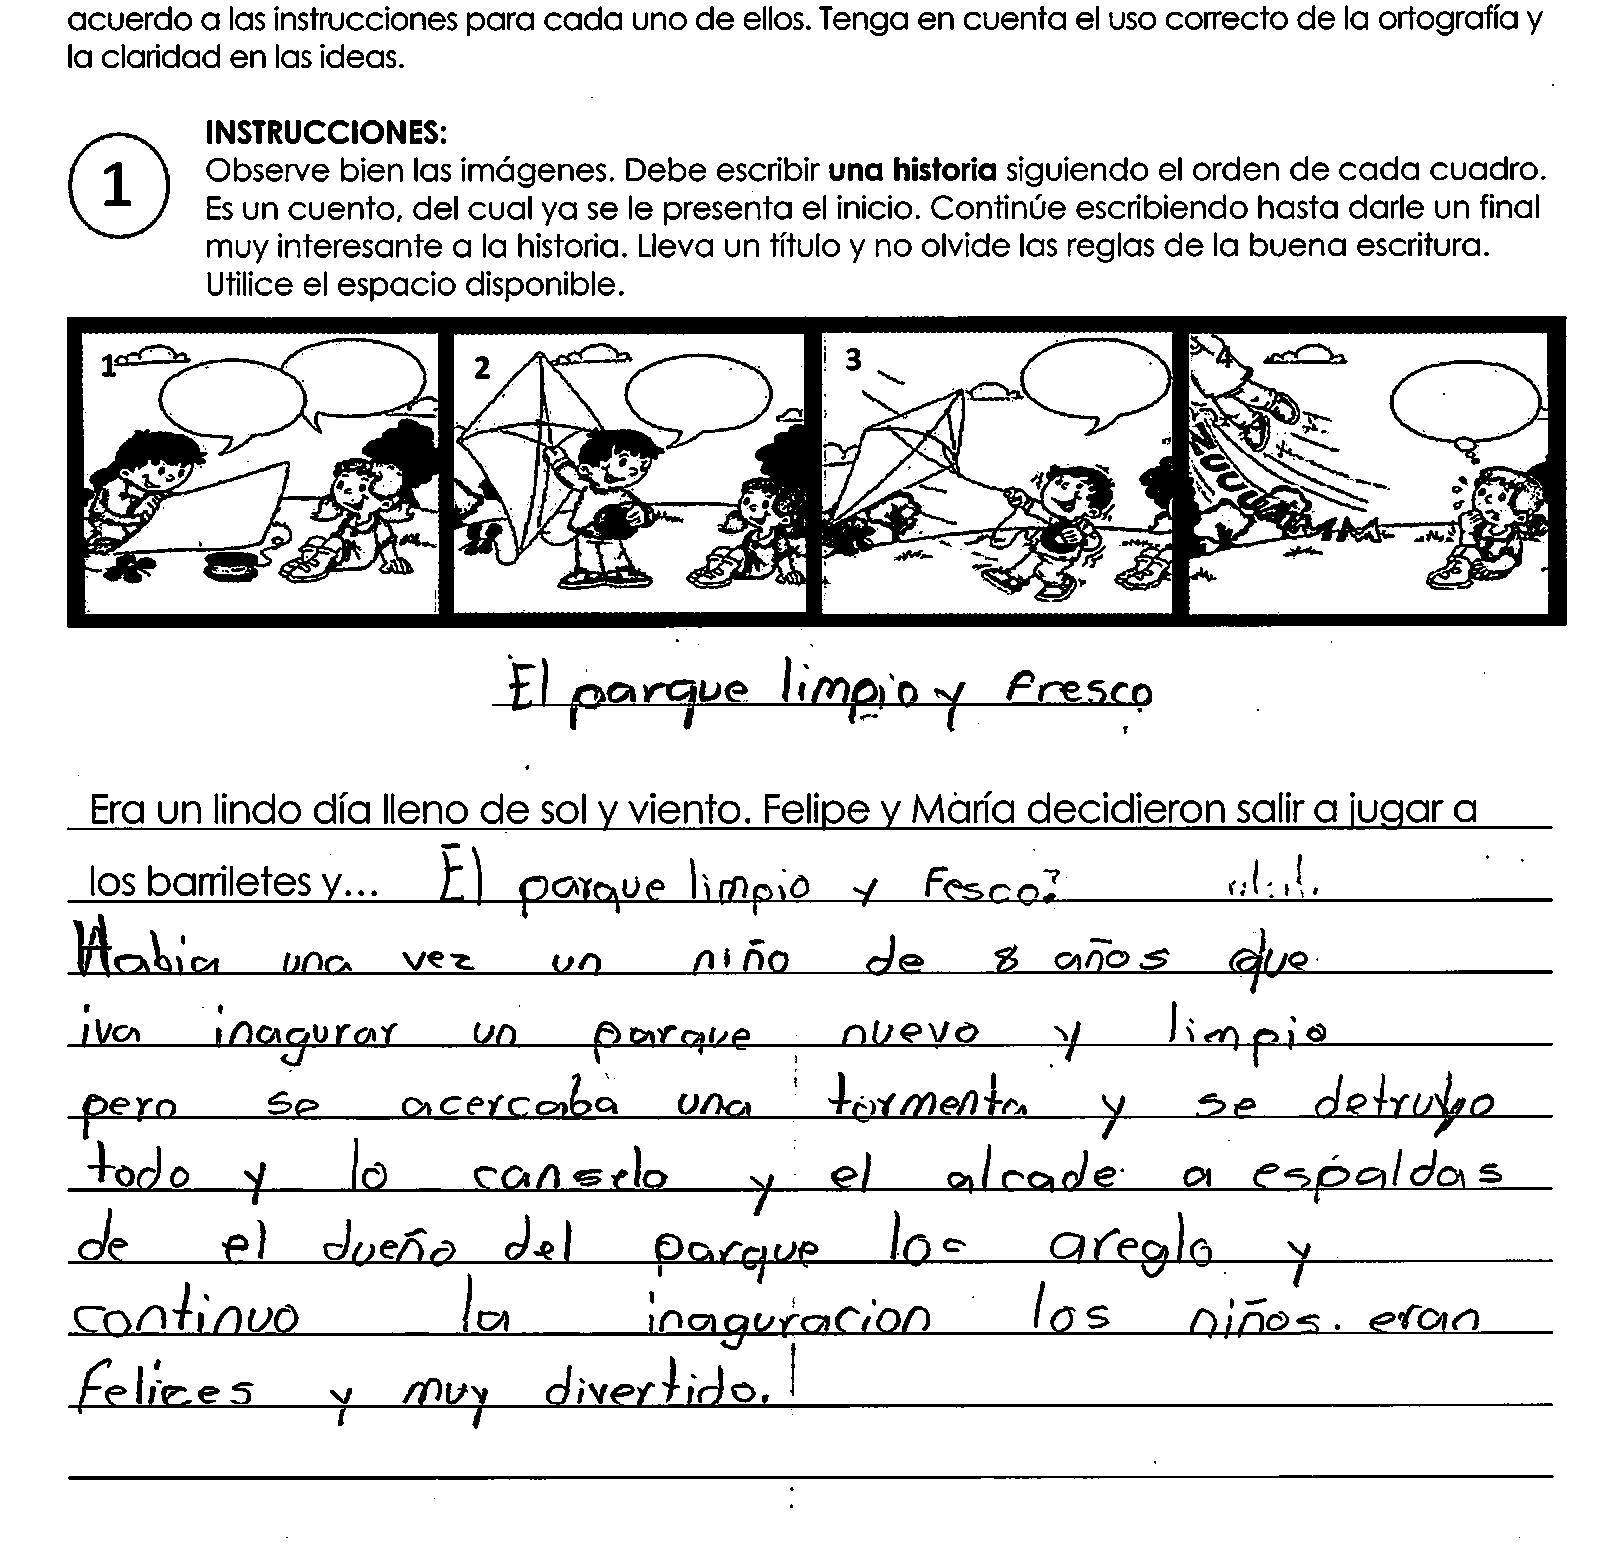 acuerdo a las instrucciones para cada uno de ellos. Tenga en cuenta el uso correcto de la ortografía y
la claridad en las ideas.
1
INSTRUCCIONES:
Observe bien las imágenes. Debe escribir una historia siguiendo el orden de cada cuadro.
Es un cuento, del cual ya se le presenta el inicio. Continúe escribiendo hasta darle un final
muy interesante a la historia. Lleva un título y no olvide las reglas de la buena escritura.
Utilice el espacio disponible.
1 2 3 4
El parque limpio y fresco
Era un lindo día lleno de sol y viento. Felipe y María decidieron salir a jugar a
los barriletes y... El parque limpio y Fesco?
Habia una vez un niño de 8 años que
iva inagurar un parque nuevo y limpio
pero se acercaba una tormenta y se
todo y lo canselo y el alcade a espaldas
de el dueño del parque los areglo y
continuo la inaguracion los niños. eran
felices y muy divertido.